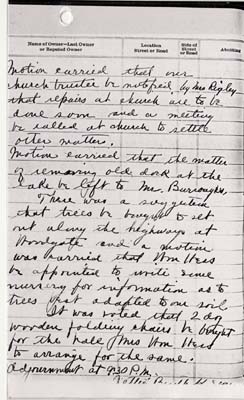 Name of Owner—Last Owner or Reputed Owner
Location Street or Road
Side of Street or Road
Abutting
Motion carried that our
church trustee be notified by Mrs Rigley
that repairs at church are to be
done soon and a meeting
be called at church to settle
other matters.
Motion carried that the matter
of removing old dock at the
Lake be left to Mr. Burroughs.
There was a suggestion
that trees be bought to set
out along the highways at
Woodgate and a motion
was carried that Wm Utes
be appointed to write some
nursery for information as to
trees best adapted to our soil
It was voted that 2 doz
wooden folding chairs be bought
for the hall, Mrs Wm Utes
to arrange for the same.
Adjournment at 9:30 P.M.